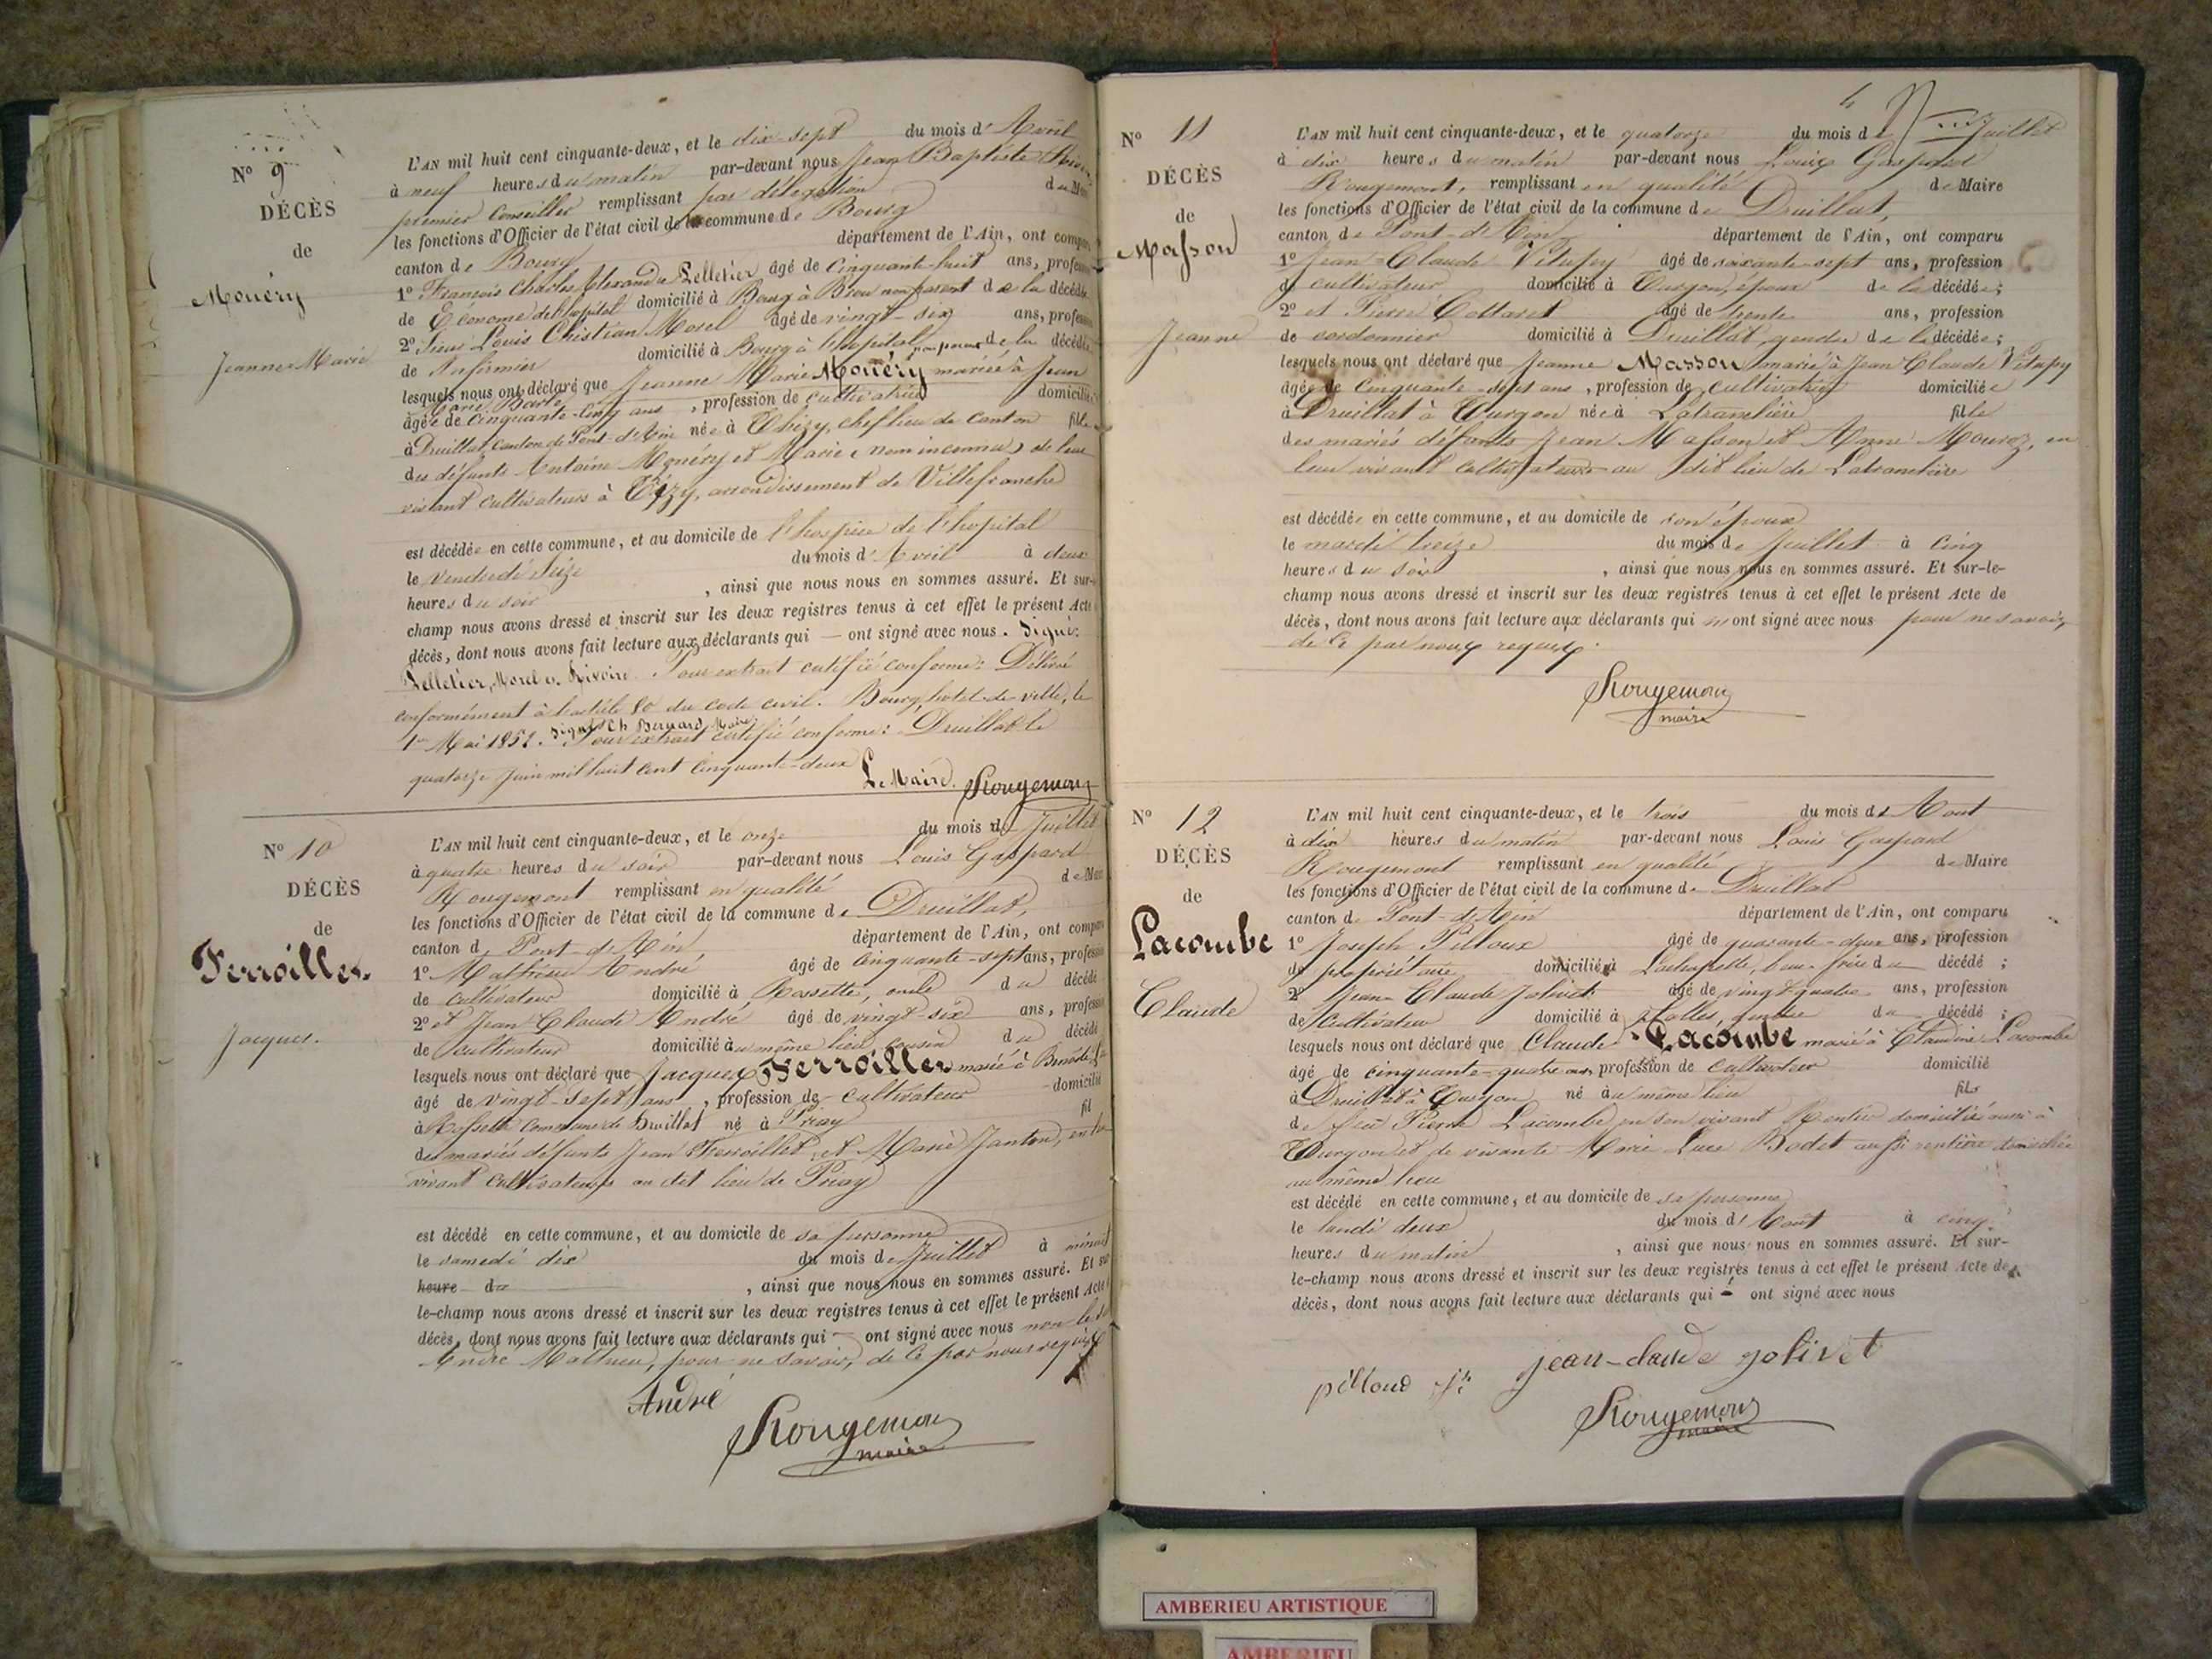 N° 9
DÉCÈS
de
Mouéry
Jeanne Marie
L'AN mil huit cent cinquante-deux, et le dix-sept du mois d'Avril
à neuf heures du matin par-devant nous Jean Baptiste
premier conseiller remplissant par délégation du
les fonctions d'Officier de l'état civil de la commune de Bourg
canton de Bourg département de l'Ain, ont
1° François Charles Alexandre Pelletier âgé de cinquante-huit ans,
de Économe de l'hôpital domicilié à Bourg à Brou non parent de la décédée
2° Sieur Louis Christian Morel âgé de vingt-six ans,
de Infirmier domicilié à Bourg à l'hopital non parent de la décédée
lesquels nous ont déclaré que Jeanne Marie Mouéry mariée à Jean
Marie
âgée de cinquante-cinq ans, profession de cultivatrice domiciliée
à Druillat, canton de Pont-d'Ain née à Thizy, chef lieu de canton fille
des défunts Antoine Mouéry et Marie (nom inconnu) de leur
vivant cultivateurs à Tizy, arrondissement de Villefranche
est décédée en cette commune, et au domicile de l'hospice de l'hopital
le vendredi seize du mois d'Avril à deux
heures du soir, ainsi que nous nous en sommes assuré. Et sur-
champ nous avons dressé et inscrit sur les deux registres tenus à cet effet le présent Acte
décès, dont nous avons fait lecture aux déclarants qui — ont signé avec nous. Signé:
Pelletier, Morel et Rivoire. Pour extrait certifié conforme: Délivré
conformément à l'article 80 du code civil. Bourg, hotel-de-ville, le
1er Mai 1852. Signé Ch Bernard, Maire. Pour extrait certifié conforme: Druillat le
quatorze juin mil huit cent cinquante-deux Le Maire. Rougemont
N° 10
DÉCÈS
de
Ferroillet
Jacques.
L'AN mil huit cent cinquante-deux, et le onze du mois de Juillet
à quatre heures du soir par-devant nous Louis Gaspard
Rougemont remplissant en qualité de
les fonctions d'Officier de l'état civil de la commune de Druillat,
canton de Pont-d'Ain département de l'Ain, ont
1° Mathieu André âgé de cinquante-sept ans,
de cultivateur domicilié à Rossette, oncle du décédé
2° et Jean Claude André âgé de vingt-six ans,
de cultivateur domicilié au même lieu cousin du décédé
lesquels nous ont déclaré que Jacques Ferroillet marié à
âgé de vingt-sept ans, profession de cultivateur domicilié
à Rossette commune de Druillat né à Priay fil
des mariés défunts Jean Ferroillet et Marie Janton, en leur
vivant cultivateurs au dit lieu de Priay
est décédé en cette commune, et au domicile de sa personne
le samedi dix du mois de Juillet à minuit
heure du, ainsi que nous nous en sommes assuré. Et
le-champ nous avons dressé et inscrit sur les deux registres tenus à cet effet le présent Acte
décès, dont nous avons fait lecture aux déclarants qui — ont signé avec nous non
André Mathieu, pour ne savoir, de ce par nous requis
André
Rougemont
maire
N° 11
DÉCÈS
de
Masson
Jeanne
L'AN mil huit cent cinquante-deux, et le quatorze du mois de Juillet
à dix heures du matin par-devant nous Louis Gaspard
Rougemont, remplissant en qualité de Maire
les fonctions d'Officier de l'état civil de la commune de Druillat,
canton de Pont-d'Ain département de l'Ain, ont comparu
1° Jean-Claude Vitupy âgé de soixante-sept ans, profession
de cultivateur domicilié à Turgon, époux de la décédée;
2° et Pierre Collaret âgé de trente ans, profession
de cordonnier domicilié à Druillat, gendre de la décédée;
lesquels nous ont déclaré que Jeanne Masson mariée à Jean Claude Vitupy
âgée de cinquante-sept ans, profession de cultivatrice domiciliée
à Druillat à Turgon née à Latranclière fille
des mariés défunts Jean Masson et Anne Mouroz, en
leur vivant cultivateurs au dit lieu de Latranclière
est décédée en cette commune, et au domicile de son époux
le mardi treize du mois de Juillet à cinq
heures du soir, ainsi que nous nous en sommes assuré. Et sur-le-
champ nous avons dressé et inscrit sur les deux registres tenus à cet effet le présent Acte de
décès, dont nous avons fait lecture aux déclarants qui n'ont signé avec nous pour ne savoir,
de ce par nous requis.
Rougemont
maire
N° 12
DÉCÈS
de
Lacombe
Claude
L'AN mil huit cent cinquante-deux, et le trois du mois de Aout
à dix heures du matin par-devant nous Louis Gaspard
Rougemont remplissant en qualité de Maire
les fonctions d'Officier de l'état civil de la commune de Druillat
canton de Pont-d'Ain département de l'Ain, ont comparu
1° Joseph Pilloux âgé de quarante-deux ans, profession
de propriétaire domicilié à Lachapelle, beau-frère du décédé;
2° Jean Claude Jolivet âgé de vingt-quatre ans, profession
de cultivateur domicilié à gendre du décédé;
lesquels nous ont déclaré que Claude Lacombe marié à Claudine Lacombe
âgé de cinquante-quatre ans, profession de cultivateur domicilié
à Druillat à Turgon né au même lieu fils
de feu Pierre Lacombe en son vivant Rentier domicilié aussi à
Turgon et de vivante Marie Luce Bodet aussi rentière domiciliée
au même lieu
est décédé en cette commune, et au domicile de sa personne
le lundi deux du mois d'Août à cinq
heures du matin, ainsi que nous nous en sommes assuré. Et sur-
le-champ nous avons dressé et inscrit sur les deux registres tenus à cet effet le présent Acte de
décès, dont nous avons fait lecture aux déclarants qui — ont signé avec nous
pilloud jh jean-claude jolivet
Rougemont
maire
AMBERIEU ARTISTIQUE
AMBERIEU